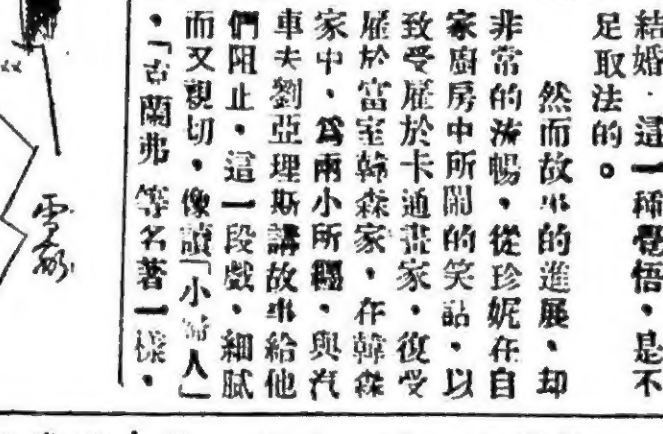 結婚．這一種覺悟，是不
足取法的。
然而故事的進展，却
非常的流暢，從珍妮在自
家廚房中所鬧的笑話，以
致受雇於卡通畫家，復受
雇於富室韓森家，在韓森
家中，爲兩小所纒，與汽
車夫劉亞理斯講故事給他
們阻止，這一段戲，細膩
而又親切，像讀「小婦人」
，「古蘭弗 等名著一樣，